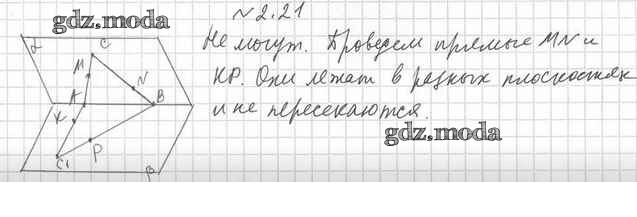 №2.21
gdz.moda
Не могут. Проведем прямые MN и
KP. Они лежат в разных плоскостях
и не пересекаются.
gdz.moda
α
C
M
N
A
B
K
P
C₁
β